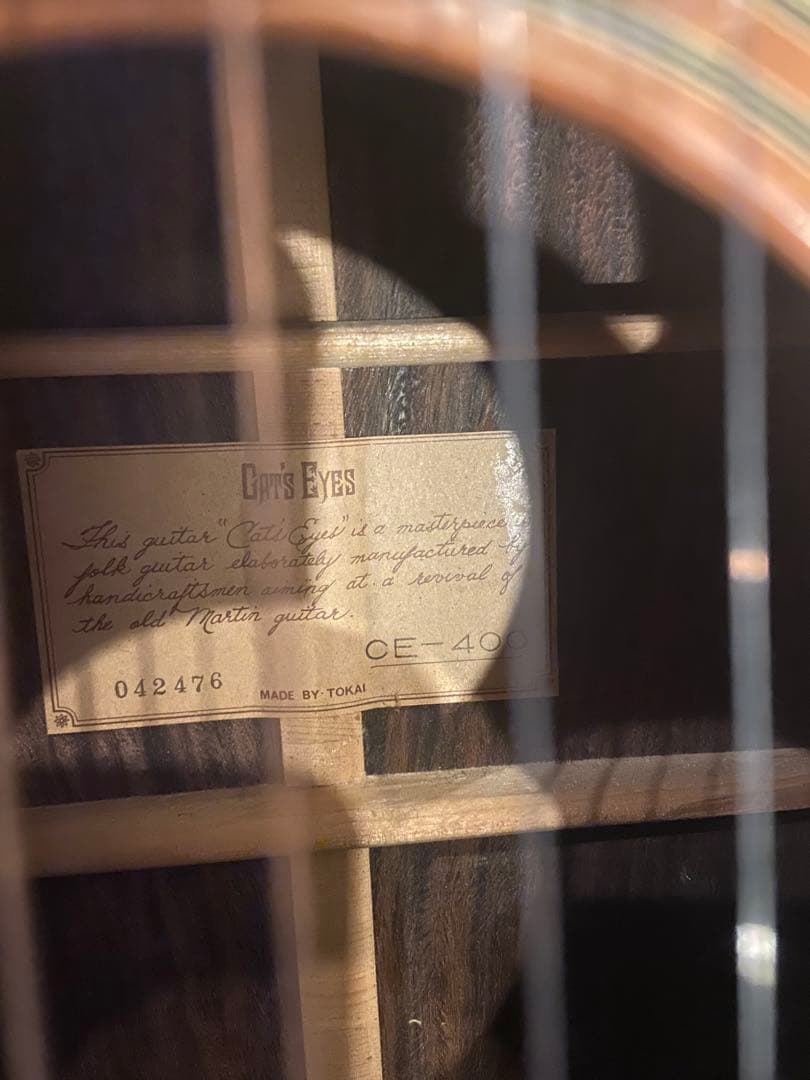 CAT'S EYES
This guitar "Cat's Eyes" is a masterpiece
folk guitar elaborately manufactured by
handicraftsmen aiming at a revival of
the old Martin guitar.
CE-400
042476
MADE BY TOKAI